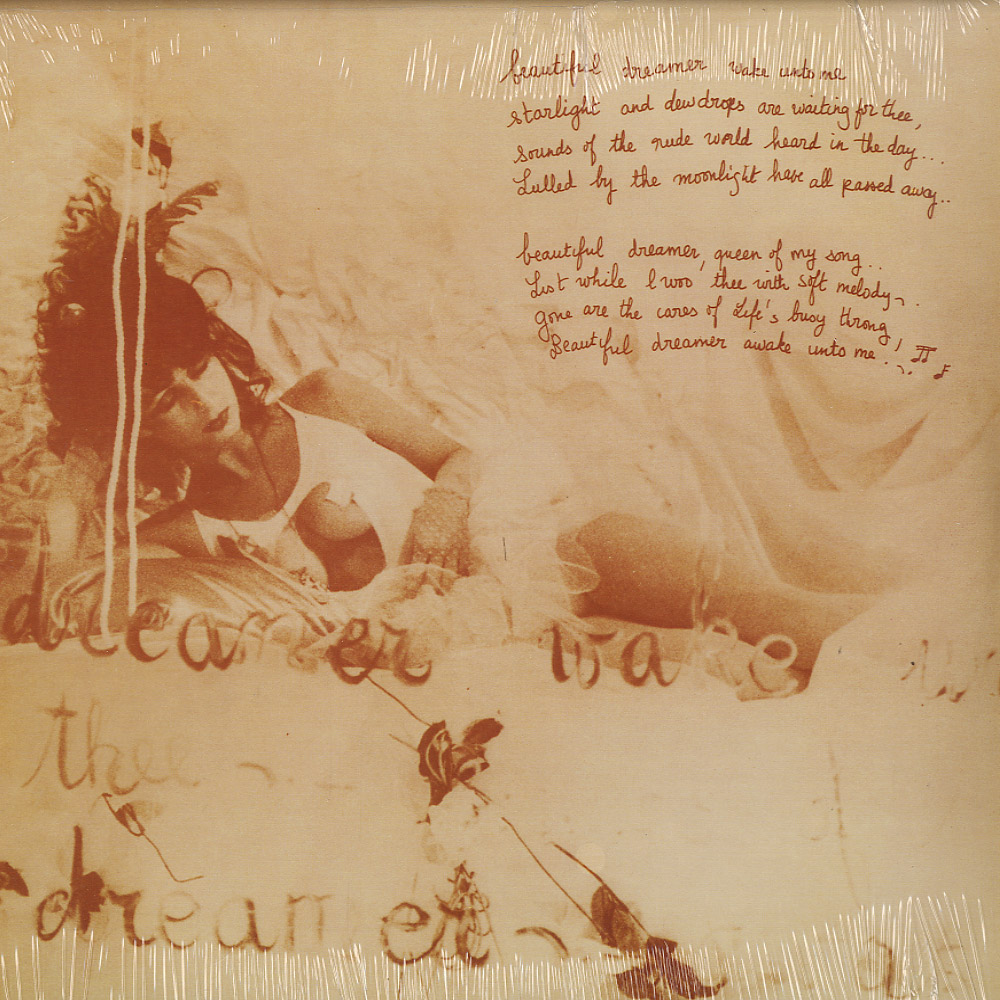 beautiful dreamer wake unto me
starlight and dewdrops are waiting for thee,
sounds of the rude world heard in the day...
Lulled by the moonlight have all passed away..
beautiful dreamer, queen of my song..
List while I woo thee with soft melody..
gone are the cares of Life's busy throng,
Beautiful dreamer awake unto me!
dreamer wake
thee
dreamer